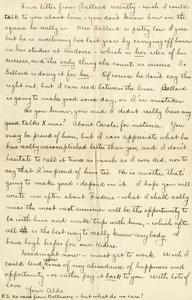 I've letter from Ballard recently - wish I could
talk to you about him - you don't know how on the
queue he really is. Mrs. Ballard is pretty low I guess
but he is confining his last years by carrying off honors
in his studies at Andover - which is her idea of his
success, and the only thing she counts as success. So
Ballard is doing it for her. Of course he don't say this
right out, but I can read between the lines. Ballard
is going to make good some day, or I'm mistaken.
As you know, you and I didn't really have any
good talks Xmas? About Carols, for instance. You
may be proud of him, but I can appreciate what he
has really accomplished better than you and I don't
hesitate to call it twice as much as I ever did, nor to
say that I'm proud of him too. He is another that's
going to make good - depend on it. I hope you will
write me often about Isidero - what I shall really
miss the most next summer will be the opportunity
to be with him and make trips with him, - which after
all is the best way to really know anybody. I
have high hopes for our Isidero.
Good night now - must get to work. Wish I
could send some of my abundance of happiness and
opportunity - or rather pay it back to you. With lots
of love
Your Aldo
P.S. No news from Delaware - but what do we care!